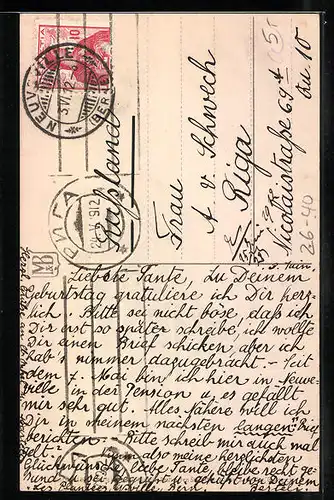 NEUVEVILLE
(BERN)
10
РИГА
Rußland
Frau
A v Schwech
Riga
Nicolaistraße 69
26-40
5. Juni
M&B
Liebste Tante, zu Deinem
Geburtstag gratuliere ich Dir herz-
lich. Bitte sei nicht böse, daß ich
Dir erst so später schreibe, ich wollte
Dir einen Brief schicken, aber ich
hab's nimmer dazugebracht. - Seit
dem 7. Mai bin ich hier in Neuve-
ville in der Pension u. es gefällt
mir sehr gut. Alles Nähere will ich
Dir in meinem nächsten langen Brief
berichten. Bitte schreib mir auch mal
also meine herzlichsten
Glückwünsche, liebe Tante, bleibe recht ge-
sund u. sei gegrüßt u. geküßt von Deinem